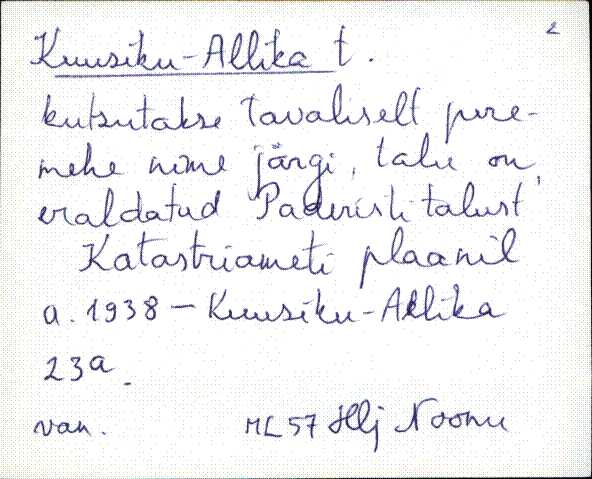 2
Kuusiku-Allika t.
kutsutakse tavaliselt pere-
mehe nime järgi, talu on
eraldatud Paderisti talust,
Katastriameti plaanil
a. 1938 – Kuusiku-Allika
23a.
van. ML 57 Hlj Noonu